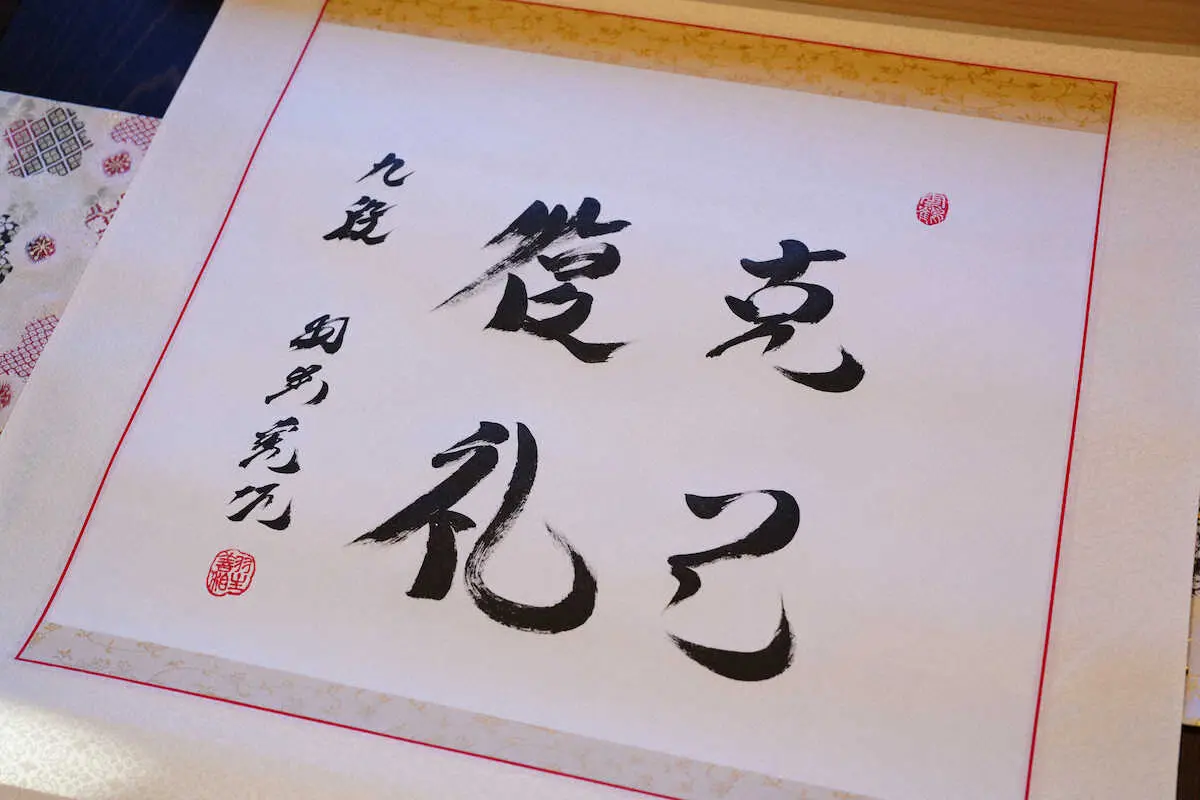 克己
復礼
九段 羽生善治
羽生
善治